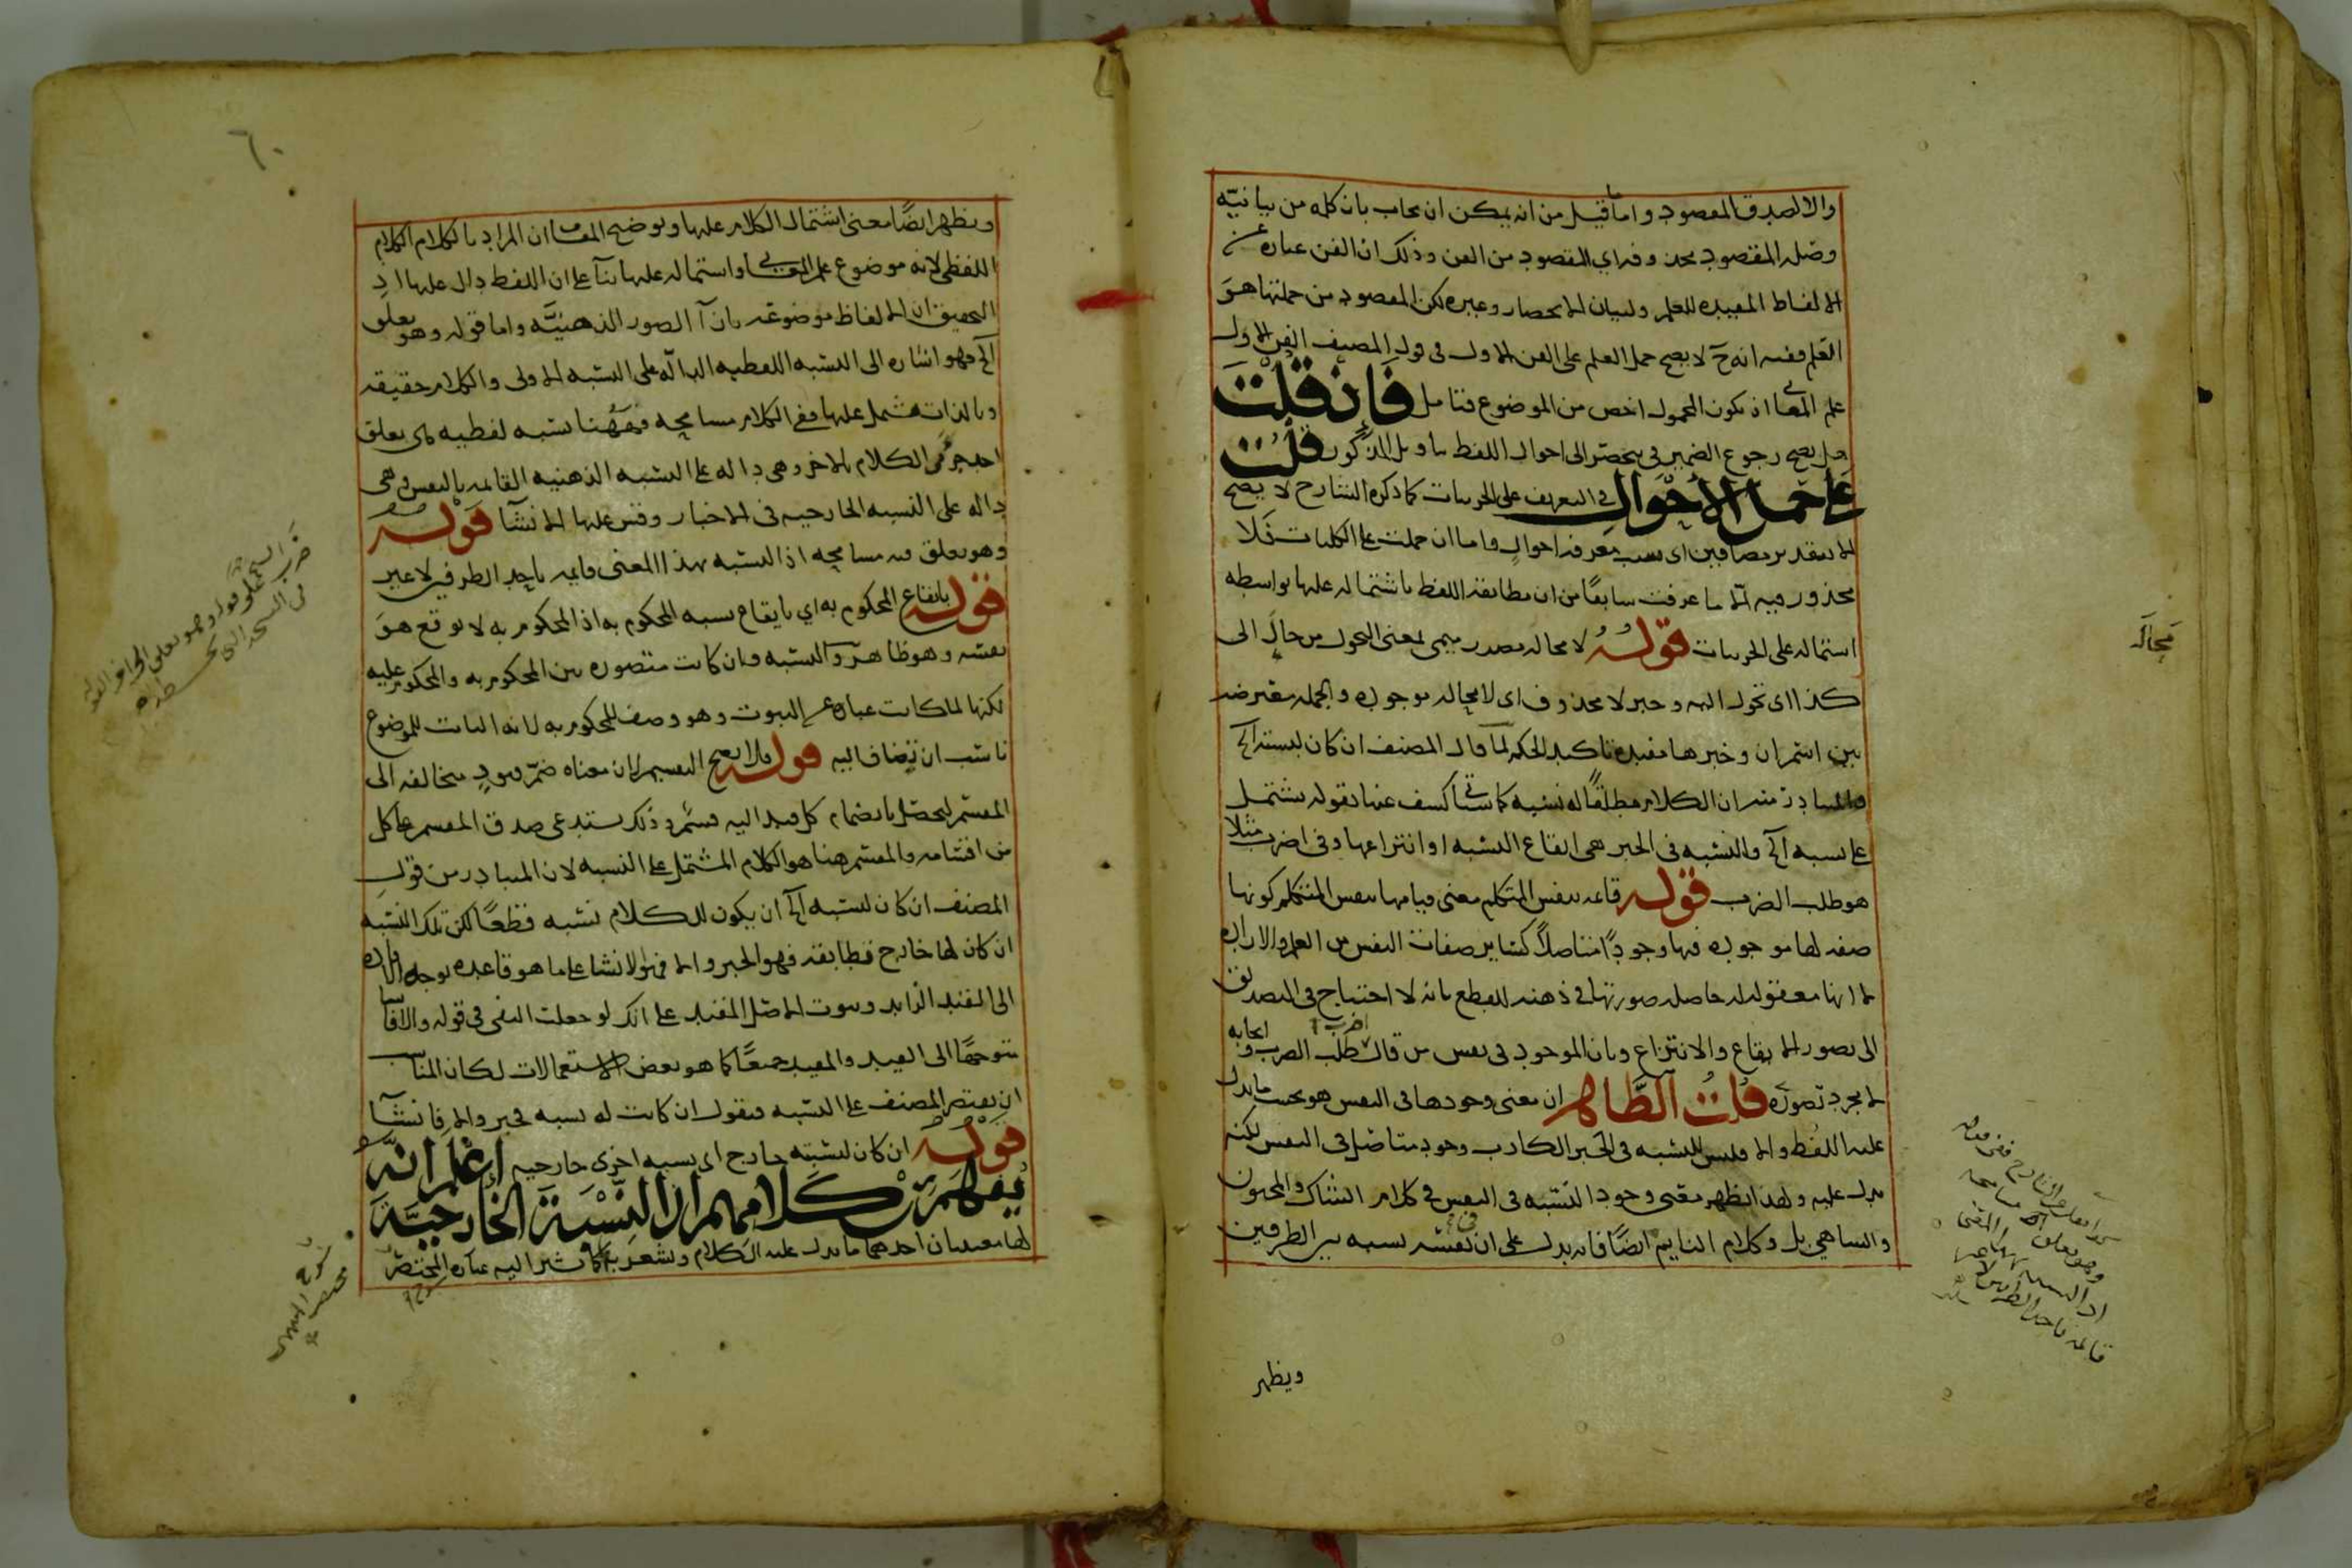 والا لصدق المقصود واما ما قيل من انه يمكن ان يجاب بان كلمه من بيانيّه
وصله المقصود محذوفه اي المقصود من الفن وذلك ان الفن عباره عن
الالفاظ المفيده للعلم ولبيان الانحصار وغيره لكن المقصود من جملتها هو
العلم ففيه انه ح لا يصح حمل العلم على الفن الاول في قول المصنف الفن الاول
علم المعاني اذ يكون المحمول اخص من الموضوع فتامل فان قلت
هل يصح رجوع الضمير في ينحصر الى احوال اللفظ بتاويل المذكور قلت
على حمل الأحوال في التعريف على الجزييات كما ذكره الشارح لا يصح
الا بتقدير مضافين اي سبب معرفه احوال واما ان حملت على الكليات فلا
محذور فيه الا ما عرفت سابقًا من ان مطابقه اللفظ باشتماله عليها بواسطه
اشتماله على الجزييات قوله لا محاله مصدر ميمي بمعنى التحول من حال الى
كذا اي تحول اليه وخبر لا محذوف اي لا محاله موجوده والجمله معترضه
بين اسم ان وخبرها مفيده تاكيد الحكم لما قال المصنف ان كان لنسبته الخ
والمتبادر منه ان الكلام مطلقًا له نسبه كاشيا كشف عنها بقوله يشتمل
على نسبه الخ والنسبه في الخبر هي ايقاع النسبه او انتزاعها وفي اضرب مثلا
هو طلب الضرب قوله قائمه بنفس المتكلم معنى قيامها بنفس المتكلم كونها
صفه لها موجوده فيها وجودًا متاصلًا كساير صفات النفس من العلم والاراده
لا انها معقوله له حاصله صورتها في ذهنه للقطع بانه لا احتياج في التصديق
الى تصور الايقاع والانتزاع وبان الموجود في نفس من قال اضرب طلب الضرب وايجابه
لا مجرد تصوره قلت الظاهر ان معنى وجودها في النفس هو بحيث ما يدل
عليه اللفظ والا فليس للنسبه في الخبر الكاذب وجود متاصل في النفس لكنه
يدل عليه وبهذا يظهر معنى وجود النسبه في النفس في كلام الشاك والمجنون
والساهي بل وكلام النايم ايضًا فانه يدل على ان في نفسه نسبه بين الطرفين
ويظهر
مجاله
وهو يتعلق
اذ النسبه
قائمه باحد الطرفين لا
٦٠
ويظهر ايضًا معنى اشتمال الكلام عليها وتوضيح المقام ان المراد بالكلام الكلام
اللفظي لانه موضوع علم المعاني واشتماله عليها بنآ على ان اللفظ دال عليها اذ
التحقيق ان الالفاظ موضوعه بازآ الصور الذهنيّه واما قوله وهو يعلق
الخ فهو اشاره الى النسبه اللفظيه الدالّه على النسبه الاولى والكلام حقيقه
وبالذات مشتمل عليها ففي الكلام مسامحه فههنا نسبه لفظيه هي تعلق
احد جزئي الكلام بالاخر وهي داله على النسبه الذهنيه القائمه بالنفس وهي
داله على النسبه الخارجيه في الاخبار وقس عليها الانشآ قوله
وهو يعلق فيه مسامحه اذ النسبه بهذا المعنى قايمه باحد الطرفين لا غير
قوله بايقاع المحكوم به اي بايقاع نسبه المحكوم به اذ المحكوم به لا يوقع هو
بعينه وهو ظاهر والنسبه وان كانت متصوره بين المحكوم به والمحكوم عليه
لكنها لما كانت عباره عن الثبوت وهو وصف للمحكوم به لانه الثابت للموضوع
ناسب ان تضاف اليه قوله فلا يصح التقسيم لان معناه ضمّ قيود متخالفه الى
المقسم ليحصل بانضمام كل قيد اليه قسم وذلك يستدعي صدق المقسم على كل
من اقسامه والمقسم هنا هو الكلام المشتمل على النسبه لان المتبادر من قول
المصنف ان كان لنسبته الخ ان يكون للكلام نسبه قطعًا لكن تلك النسبه
ان كان لها خارج تطابقه فهو الخبر والا فهو الانشا على ما هو قاعده توجه الافاده
الى القيد الزايد وثبوت الاصل المقيد على انك لو جعلت النفي في قوله والا
متوجهًا الى القيد والمقيد جميعًا كما هو بعض الاستعمالات لكان المناسب
ان يقتصر المصنف على النسبه فيقول ان كانت له نسبه فخبر والا فانشآ
قوله ان كان لنسبته خارج اي نسبه اخرى خارجيه اعلم انه
يفهم من كلامهم ان النسبة الخارجية
لها معنيان احدهما ما يدل عليه الكلام ويشعر به كما يشير اليه عباره المختصر